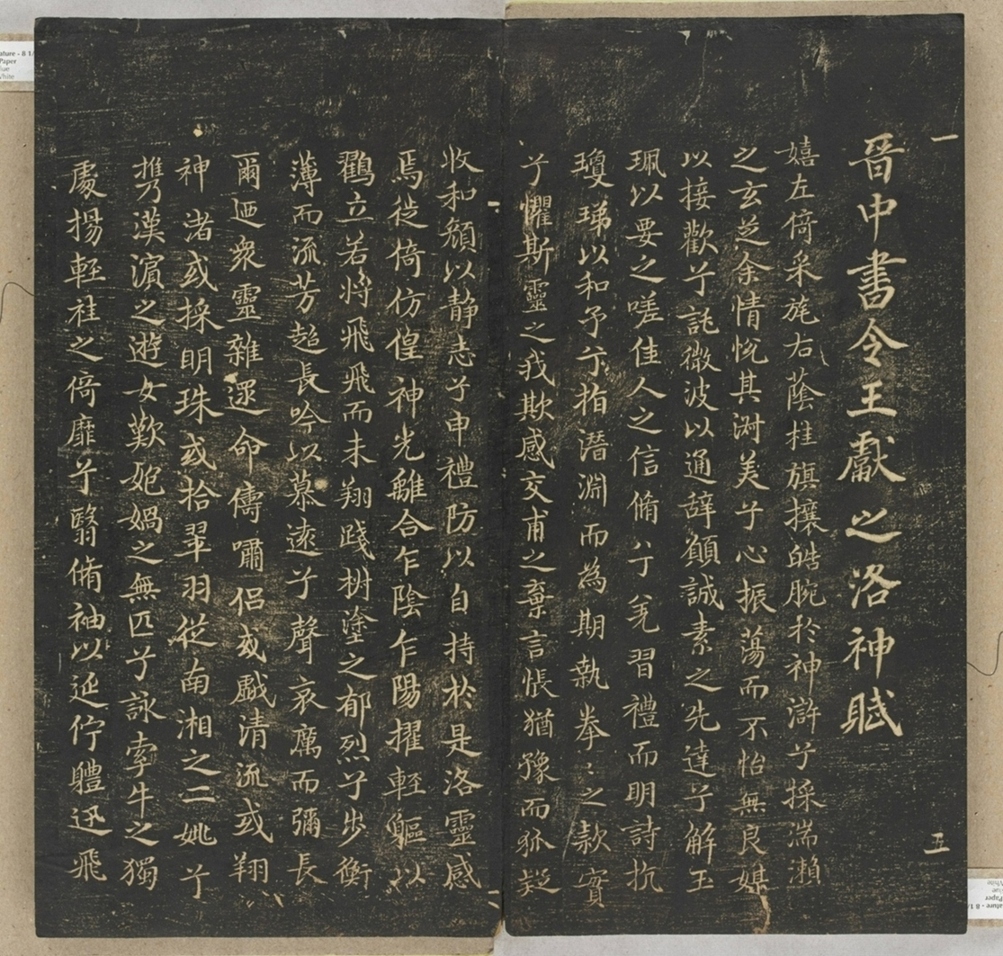 晉中書令王獻之洛神賦
嬉左倚采旄右蔭桂旗攘皓腕於神滸兮採湍瀨
之玄芝余情悅其淑美兮心振蕩而不怡無良媒
以接歡兮託微波以通辞願誠素之先達兮解玉
珮以要之嗟佳人之信脩兮羌習禮而明詩抗
瓊珶以和予兮指潛淵而為期執拳〻之款實
兮懼斯靈之我欺感交甫之棄言悵猶豫而狐疑
收和顏以静志兮申禮防以自持於是洛靈感
焉徙倚仿偟神光離合乍陰乍陽擢輕軀以
鶴立若將飛飛而未翔踐椒塗之郁烈兮步衡
薄而流芳超長吟以慕遠兮聲哀厲而彌長
爾迺衆靈雜遝命儔嘯侣或戲清流或翔
神渚或採明珠或拾翠羽從南湘之二姚兮
攜漢濱之遊女歎炮媧之無匹兮詠牽牛之獨
處揚輕袿之倚靡兮翳脩袖以延佇軆迅飛
五